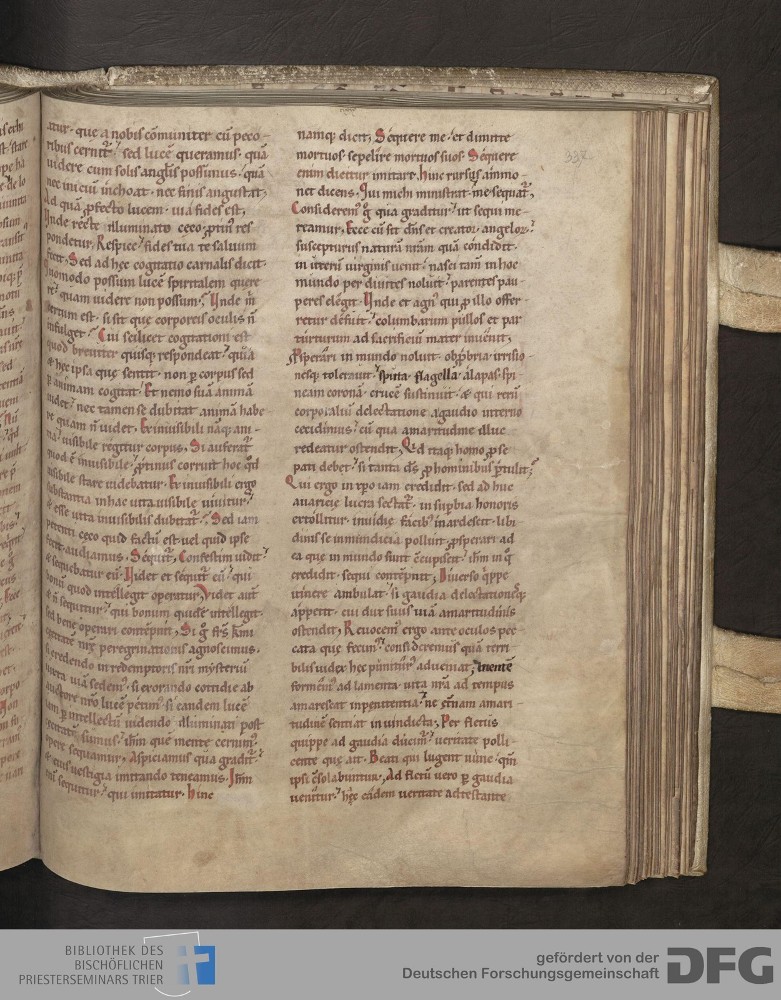 atur · que a nobis cōmuniter cū peco-
ribus cernit᷑ · sed lucē queramus · quā
uidere cum solis anglis possimus · quā
nec iniciū inchoat · nec finis angustat ;
Ad quā ꝓfecto lucem · uia fides est ,
Vnde recte illuminato ceco ꝓtin᷒ res
pondetur , Respice · fides tua te saluum
fecit , Sed ad hęc cogitatio carnalis dicit ·
Quomodo possum lucē spiritalem quere
re · quam uidere non possum · Vnde m̄
certum est · si sit · quę corporeis oculis n̄
infulget · Cui scilicet cogitationi est
quod breuiter quisq respondeat · quia
& hęc ipsa quę sentit · non ꝑ corpus sed
ꝑ animam cogitat · Et nemo suā animā
uidet · nec tamen se dubitat animā habe
re quam n̄ uidet , Ex inuisibili nāq; ani-
ma · uisibile regitur corpus , Si auferat᷑
quod ē inuisibile · ꝓtinus corruit hoc qd̄
uisibile stare uidebatur · Ex inuisibili ergo
substantia in hac uita uisibile uiuitur ·
& esse uita inuisibilis dubitat᷑ · Sed iam
petenti ceco quid factū est · uel quid ipse
fecit · audiamus · Sequit᷑ , Confestim uidit ·
& sequebatur eū · Videt et sequit᷑ eū · qui
bonū quod intellegit operatur , Videt aut̄
& n̄ sequitur · qui bonum quidē intellegit ·
sed bene operari contēpnit , Si g̊ frs̄ kmi
cecitatē nr̄ę peregrinationis agnoscimus ·
si credendo in redemptoris nr̄i mysteriū
iuxta uiā sedem᷒ · si exorando cottidie ab
auctore nr̄o lucē petim᷒ · si eandem lucē
iam ꝑ intellectū uidendo illuminati post
cecitatē sumus · ih̄m quē mente cernim᷒ ·
opere sequamur , Aspiciamus qua gradit᷑ ·
& eius uestigia imitando teneamus · Ih̄m
eni sequitur · qui imitatur · hinc
namq; dicit , Sequere me · et dimitte
mortuos · sepelire mortuos suos · Sequere
enim dicitur imitare · hinc rursus ammo-
net dicens · Qui michi ministrat · me sequat᷑ ,
Considerem᷒ g̊ qua graditur · ut sequi me-
reamur , Ecce cū sit dn̄s et creator · angeloꝝ ·
suscepturus naturā nr̄am quā condidit ·
in uterū uirginis uenit · nasci tam̄ in hoc
mundo per diuites noluit · parentes pau
peres elegit · Vnde et agn᷒ qui ꝓ illo offer
retur defuit · columbarum pullos et par
turturum ad sacrificiū mater inuenit ,
Prosperari in mundo noluit · obprobria · irrisio-
nesq; tolerauit · sputa · flagella · alapas · spi-
neam coronā · crucē sustinuit · & qui rerū
corporaliū delectatione a gaudio interno
cecidimus · cū qua amaritudine illuc
redeatur ostendit , Quid itaq; homo ꝓ se
pati debet · si tanta ds̄ ꝓ hominibus ꝑtulit ;
Qui ergo in xpo iam credidit · sed ad huc
auaricię lucra sectat᷑ · in suꝑbia honoris
extollitur · inuidię facib᷒ inardescit · libi
dinis se inmundicia polluit · ꝓsperari ad
ea que in mundo sunt cōcupiscit · ih̄m in q̊
credidit · sequi contēpnit , Diuerso q̊ppe
itinere ambulat · si gaudia delectationesq;
appetit · cui dux suus uiā amaritudinis
ostendit , Reuocem᷒ ergo ante oculos pec
cata que fecim᷒ · consideremus quā terri
bilis iudex hęc puniturus adueniat , mentē
formem᷒ ad lamenta · uita nr̄a ad tempus
amarescat in penitentia · ne ęt̄nam amari-
tudinē sentiat in uindicta , Per fletus
quippe ad gaudia ducim᷒ · ueritate polli-
cente que ait · Beati qui lugent nunc · qm̄
ipsi cōsolabuntur , Ad fletū uero ꝑ gaudia
uenitur · hęc eadem ueritate adtestante
BIBLIOTHEK DES
BISCHÖFLICHEN
PRIESTERSEMINARS TRIER
gefördert von der
Deutschen Forschungsgemeinschaft
DFG